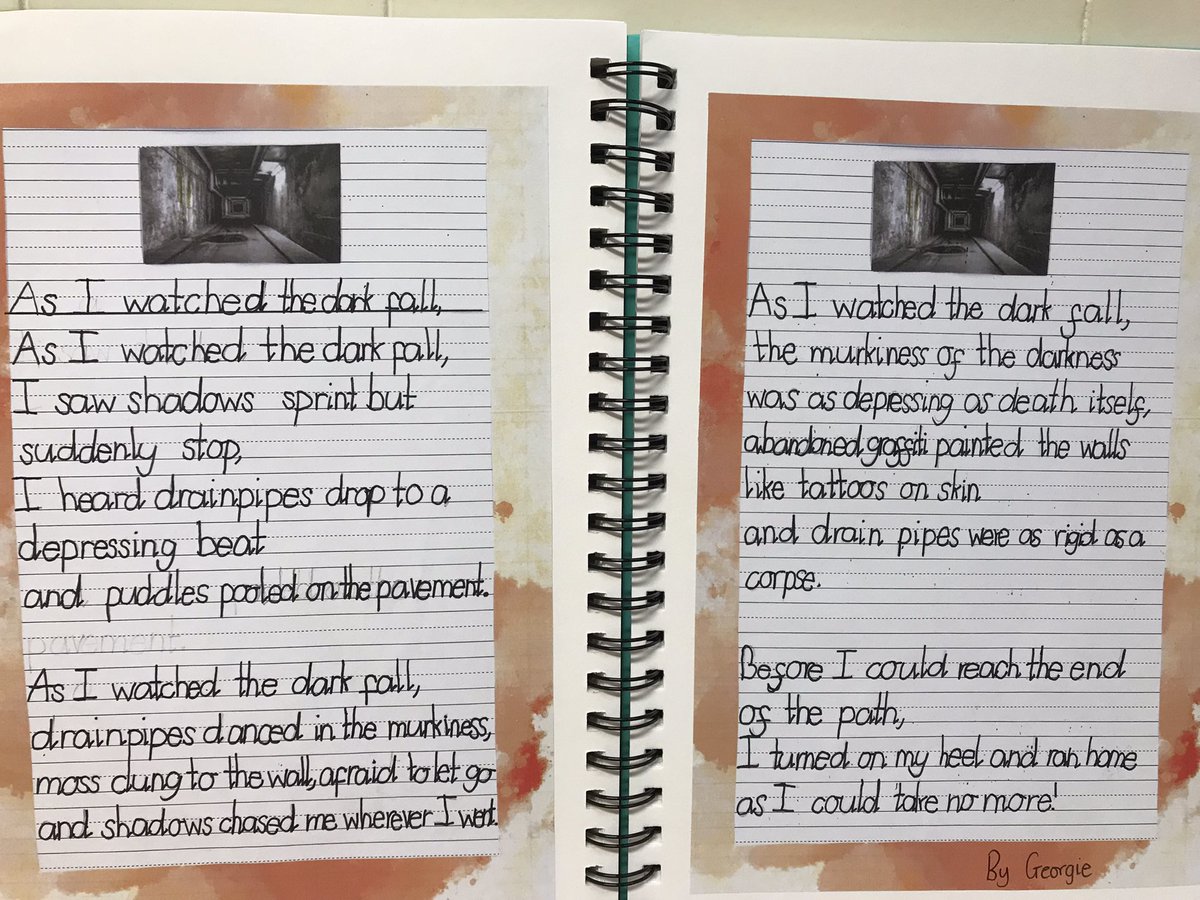 As I watched the dark fall,
As I watched the dark fall,
I saw shadows sprint but
suddenly stop,
I heard drainpipes drop to a
depressing beat
and puddles pooled on the pavement.
pavement.
As I watched the dark fall,
drainpipes danced in the murkiness,
moss clung to the wall, afraid to let go
and shadows chased me wherever I went.
As I watched the dark fall,
the murkiness of the darkness
was as depressing as death itself,
abandoned graffiti painted the walls
like tattoos on skin
and drain pipes were as rigid as a
corpse.
Before I could reach the end
of the path,
I turned on my heel and ran home
as I could take no more!
By Georgie